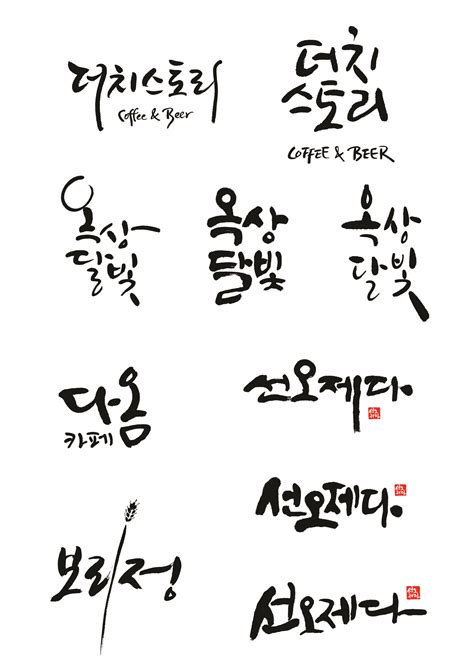 더치스토리
Coffee & Beer
더치
스토리
COFFEE & BEER
옥상
달빛
옥상
달빛
옥상
달빛
다옴
카페
선오제다.
선오제다.
보리정
선오제다.